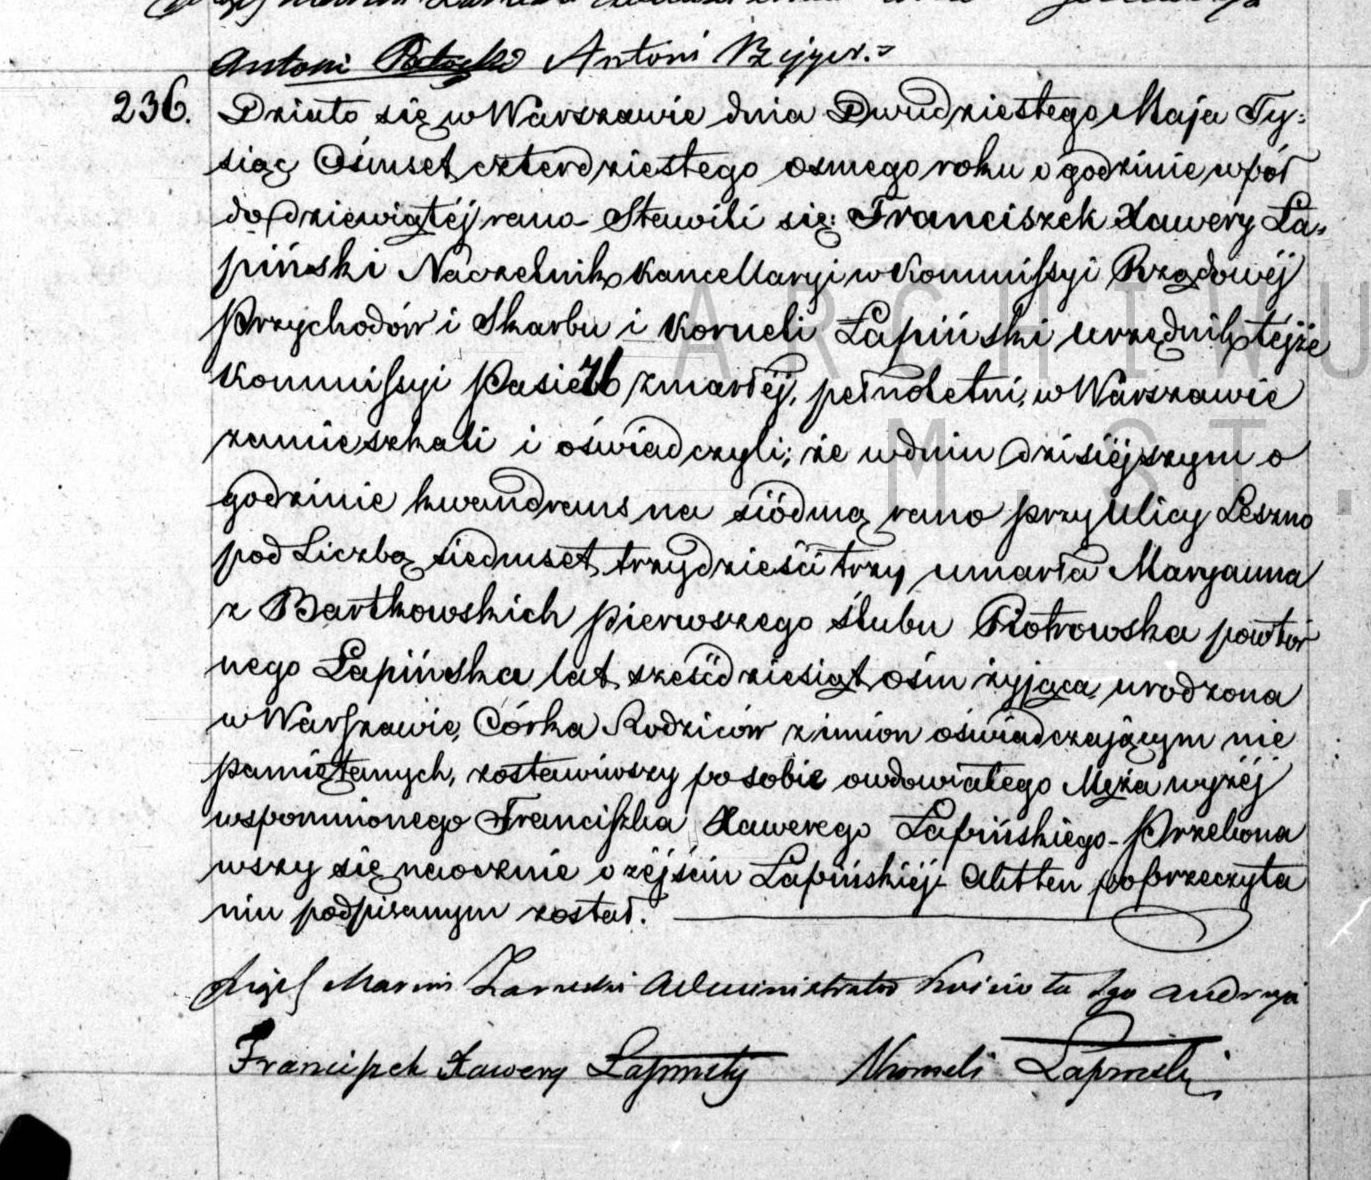 Antoni Antoni
236. Działo się w Warszawie dnia Dwudziestego Maja Ty=
siąc Ośmset czterdziestego osmego roku o godzinie wpół
do dziewiątéj rano – Stawili się: Franciszek Xawery Ła=
piński Naczelnik Kancellaryi w Kommissyi Rządowéj
Przychodów i Skarbu i Korneli Łapiński urzędnik tejże
Kommissyi Pasierb zmarłéj, pełnoletni, w Warszawie
zamieszkali i oświadczyli; że w dniu dzisiéjszym o
godzinie kwandrans na siódmą rano przy ulicy Leszno
pod Liczbą siedmset trzydzieści trzy umarła Maryanna
z Bartkowskich pierwszego ślubu Piotrowska powtór
nego Łapińska lat sześćdziesiąt ośm żyjąca, urodzona
w Warszawie, Córka Rodziców z imion oświadczającym nie
pamiętanych, zostawiwszy po sobie owdowiałego Męża wyżéj
wspomnionego Franciszka Xawerego Łapińskiego – Przekona
wszy się naocznie o zéjściu Łapińskiéj – Akt ten po przeczyta
niu podpisanym został.
Marcin Administrator Kościoła Sgo Andrzeja
Franciszek Xawery Łapiński Korneli Łapiński
ARCHIWU
M.ST.